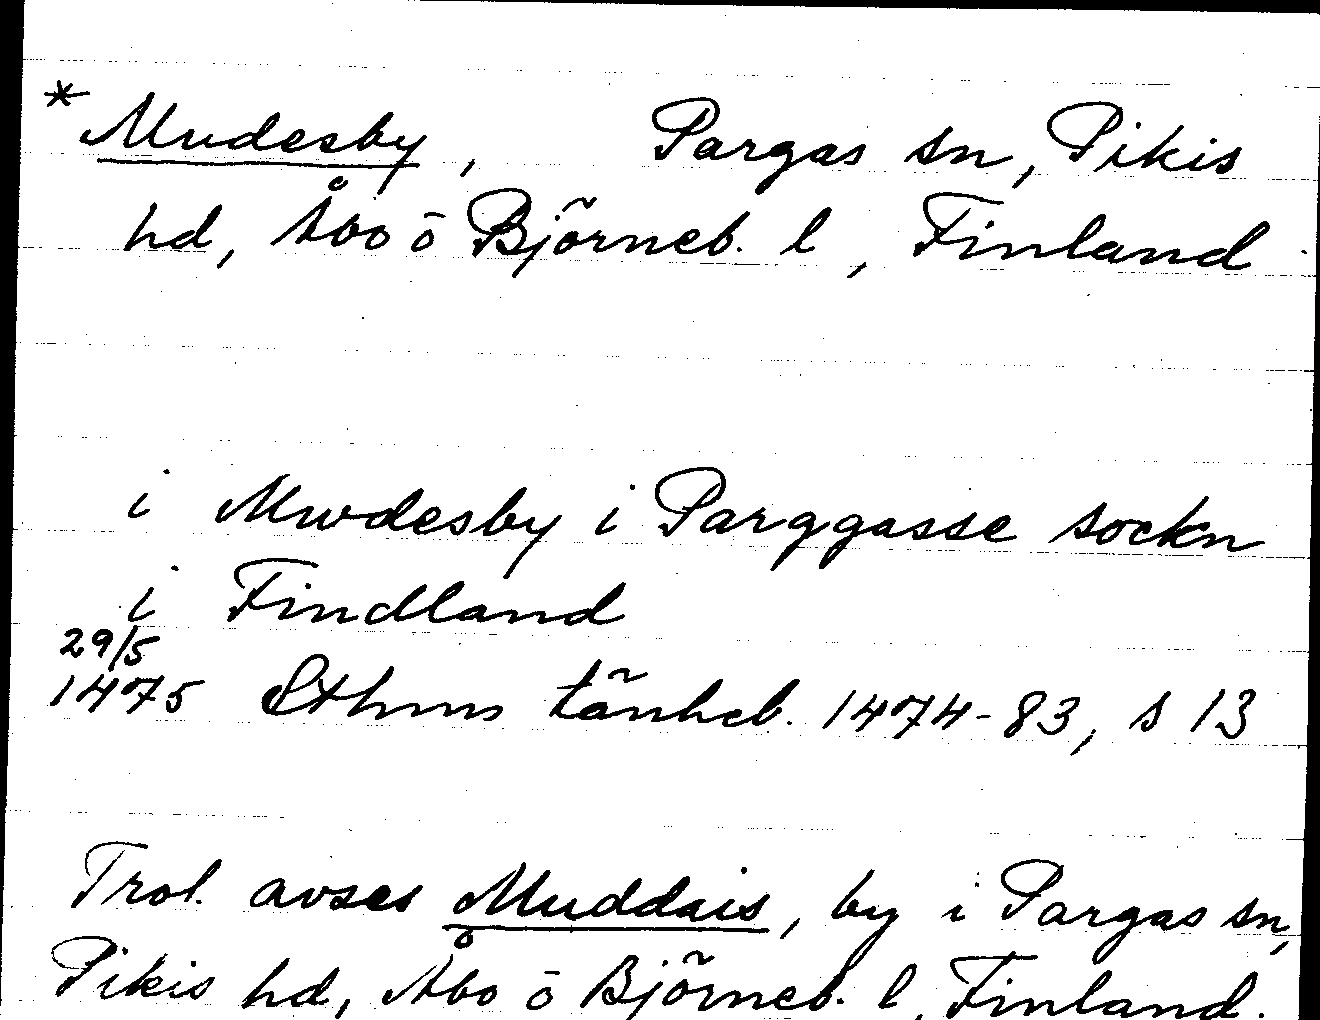 * Mudesby, Pargas sn, Pikis
hd, Åbo o Björneb. l, Finland
i Mwdesby i Parggasse sockn
i Findland
29/5
1475 Sthms tänkeb. 1474-83, s 13
Trol. avses Muddais, by i Pargas sn,
Pikis hd, Åbo o Björneb. l, Finland.